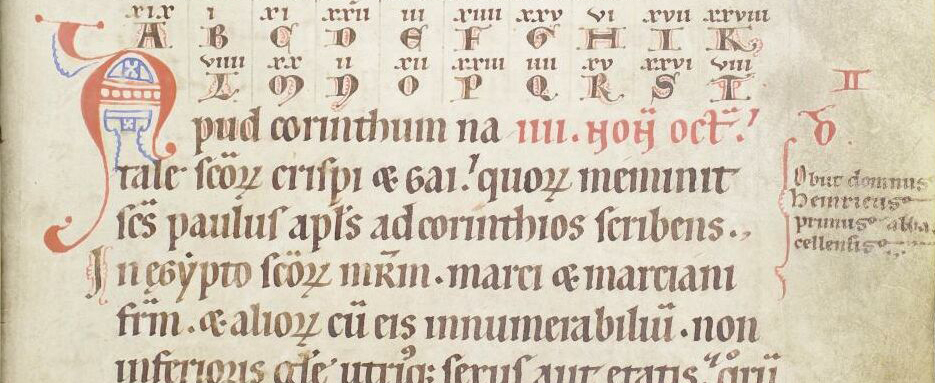 xix i xi xxii iii xiiii xxv vi xvii xxviii
A B C D E F G H I K
viiii xx ii xii xxiii iiii xv xxvi viii
L M N O P Q R S T
II
Apud corinthum na IIII. NOÑ OCT̄.
tale scōꝝ crispi & Gai. quoꝝ meminit
scs̄ paulus apl̄s ad corinthios scribens.,
In egypto scōꝝ mr̄m. marci & marciani
fr̄m. & alioꝝ cū eis innumerabiliū. non
inferioris gl̄e utriꝰq; sexus aut etatis. qꝛū
Obiit domnus
Heinricus
primus abba
cellensis